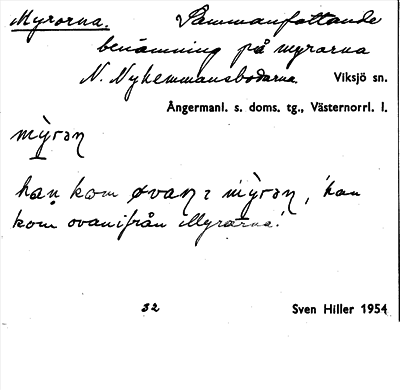 Myrorna. Sammanfattande
benämning på myrarna
N. Nyhemmansbodarna Viksjö sn.
Ångermanl. s. doms. tg., Västernorrl. l.
mỳrəɳ
han kom øvaɳ ɪ mỳrəɳ, 'han
kom ovanifrån Myrarna.'
32 Sven Hiller 1954